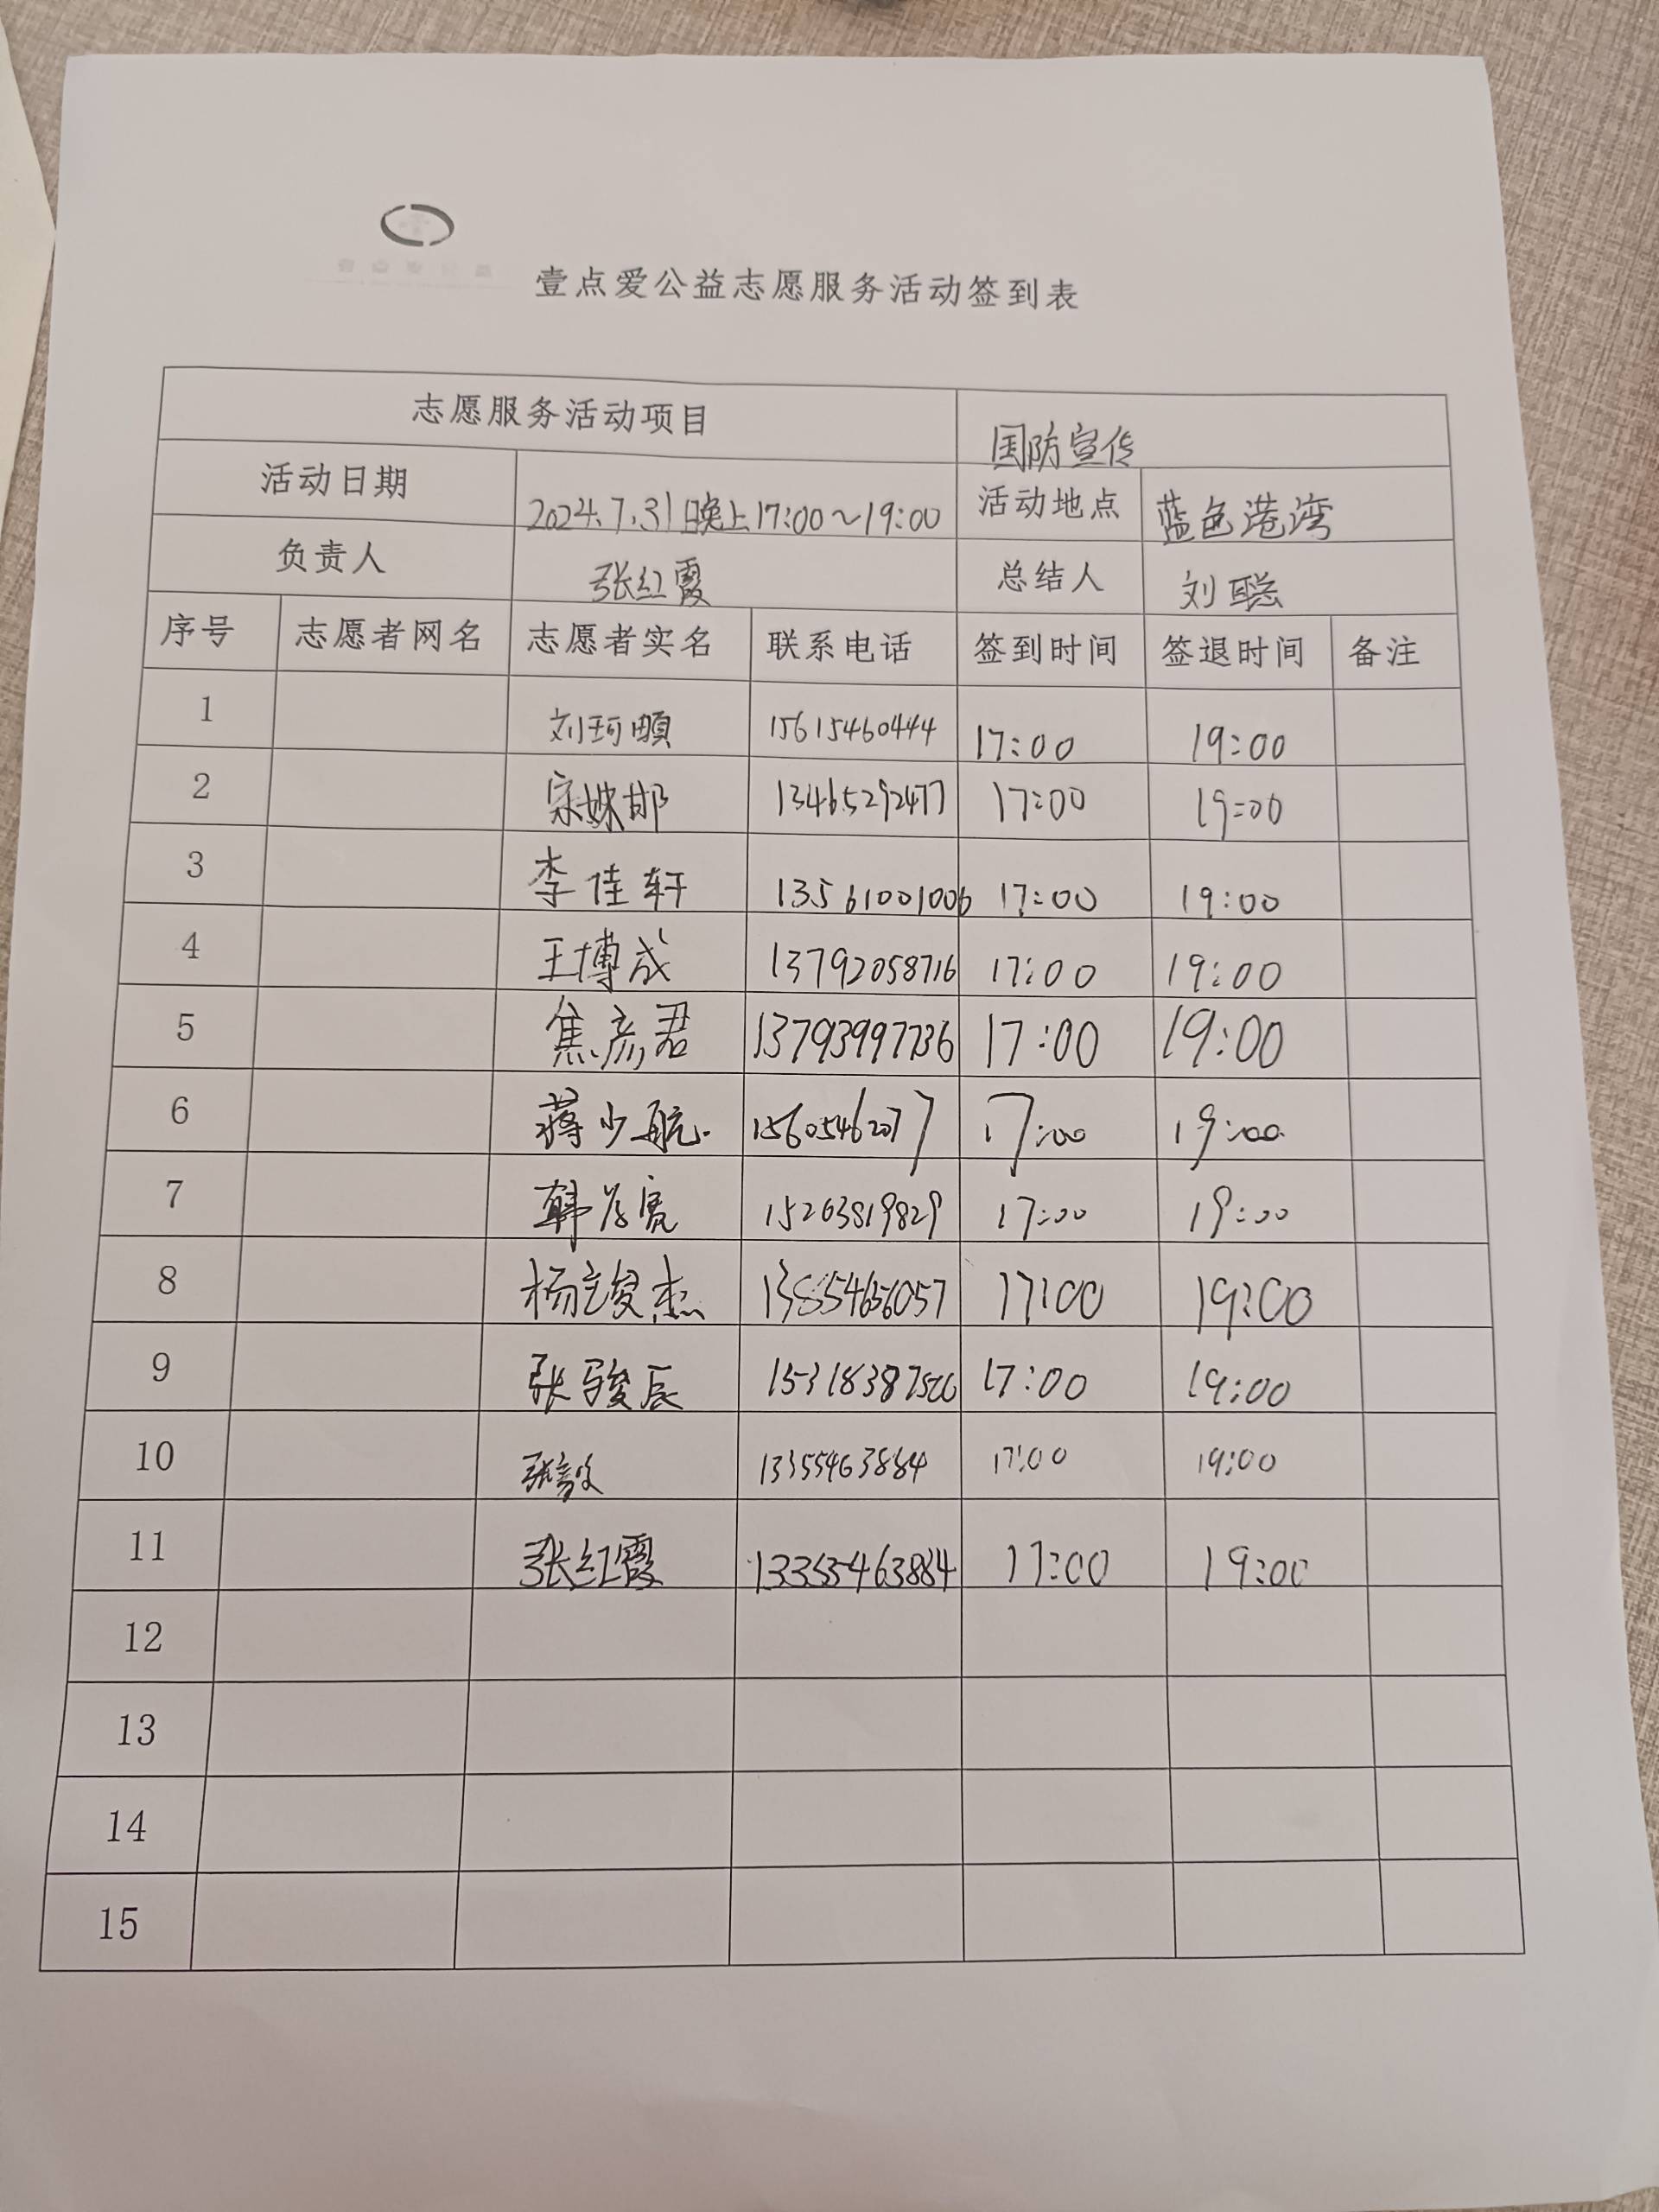 壹点爱公益志愿服务活动签到表
志愿服务活动项目 国防宣传
活动日期 2024.7.31日晚上17:00~19:00 活动地点 蓝色港湾
负责人 张红霞 总结人 刘聪
序号 志愿者网名 志愿者实名 联系电话 签到时间 签退时间 备注
1 15615460444 17:00 19:00
2 13465292477 17:00 19:00
3 李佳轩 13561001006 17:00 19:00
4 王博成 13792058716 17:00 19:00
5 焦彦君 13793997736 17:00 19:00
6 蒋少航 15605462077 17:00 19:00
7 15263819829 17:00 19:00
8 13854656057 17:00 19:00
9 张骏辰 17:00 19:00
10 13355463884 17:00 19:00
11 张红霞 13355463884 17:00 19:00
12
13
14
15